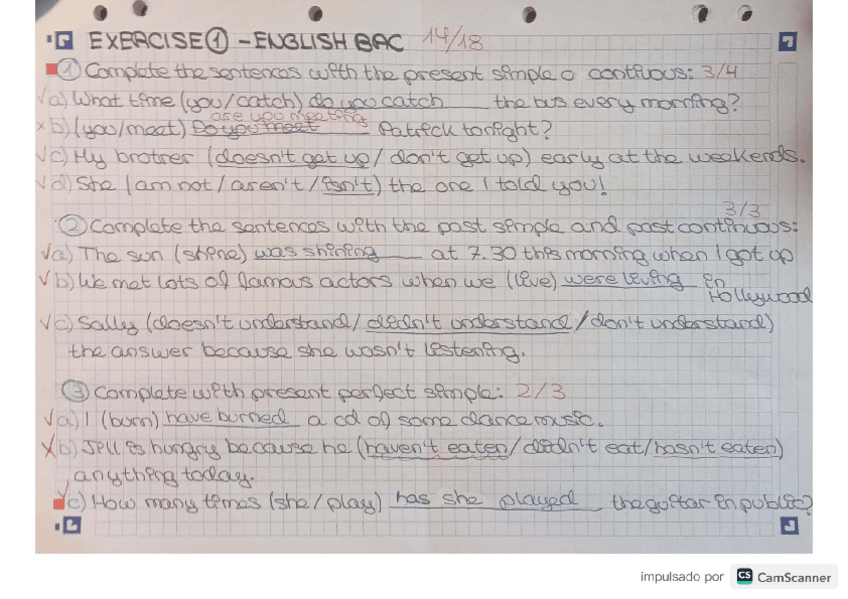 EXERCISE ① - ENGLISH BAC 14/18
① Complete the sentences with the present simple o contiuous: 3/4
√a) What time (you/catch) do you catch the bus every morning?
are you meeting
x b) (you/meet) Do you meet Patrick tonight?
√c) My brotrer (doesn't get up / don't get up) early at the weekends.
√d) She (am not / aren't / isn't) the one I told you!
3/3
② Complete the sentences with the past simple and past continuous:
√a) The sun (shine) was shining at 7.30 this morning when I got up
√b) We met lots of famous actors when we (live) were living in Hollywood
√c) Sally (doesn't understand / didn't understand / don't understand)
the answer because she wasn't listening.
③ Complete with present perfect simple: 2/3
√a) I (burn) have burned a cd of some dance music.
X b) Jill is hungry because he (haven't eaten / didn't eat / hasn't eaten)
anything today.
√c) How many times (she / play) has she played the guitar in public?
impulsado por CS CamScanner